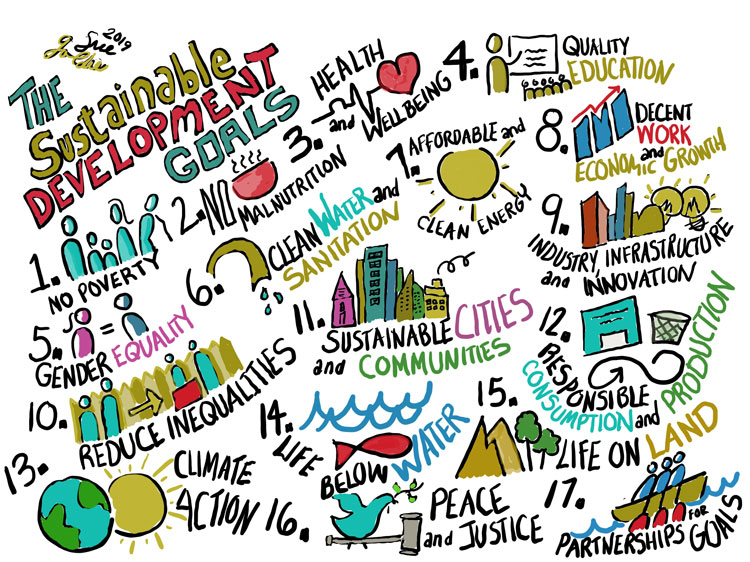 2019
THE
Sustainable
DEVELOPMENT
GOALS
1.
NO POVERTY
2. NO
MALNUTRITION
3. HEALTH
and WELLBEING
4. QUALITY
EDUCATION
5.
GENDER EQUALITY
6. CLEAN WATER and
SANITATION
7. AFFORDABLE and
CLEAN ENERGY
8. DECENT
WORK
and
ECONOMIC GROWTH
9.
INDUSTRY INFRASTRUCTURE
and INNOVATION
10.
REDUCE INEQUALITIES
11.
SUSTAINABLE CITIES
and COMMUNITIES
12.
RESPONSIBLE
CONSUMPTION and PRODUCTION
13. CLIMATE
ACTION
14.
LIFE
BELOW WATER
15.
LIFE ON LAND
16. PEACE
and JUSTICE
17.
PARTNERSHIPS FOR GOALS